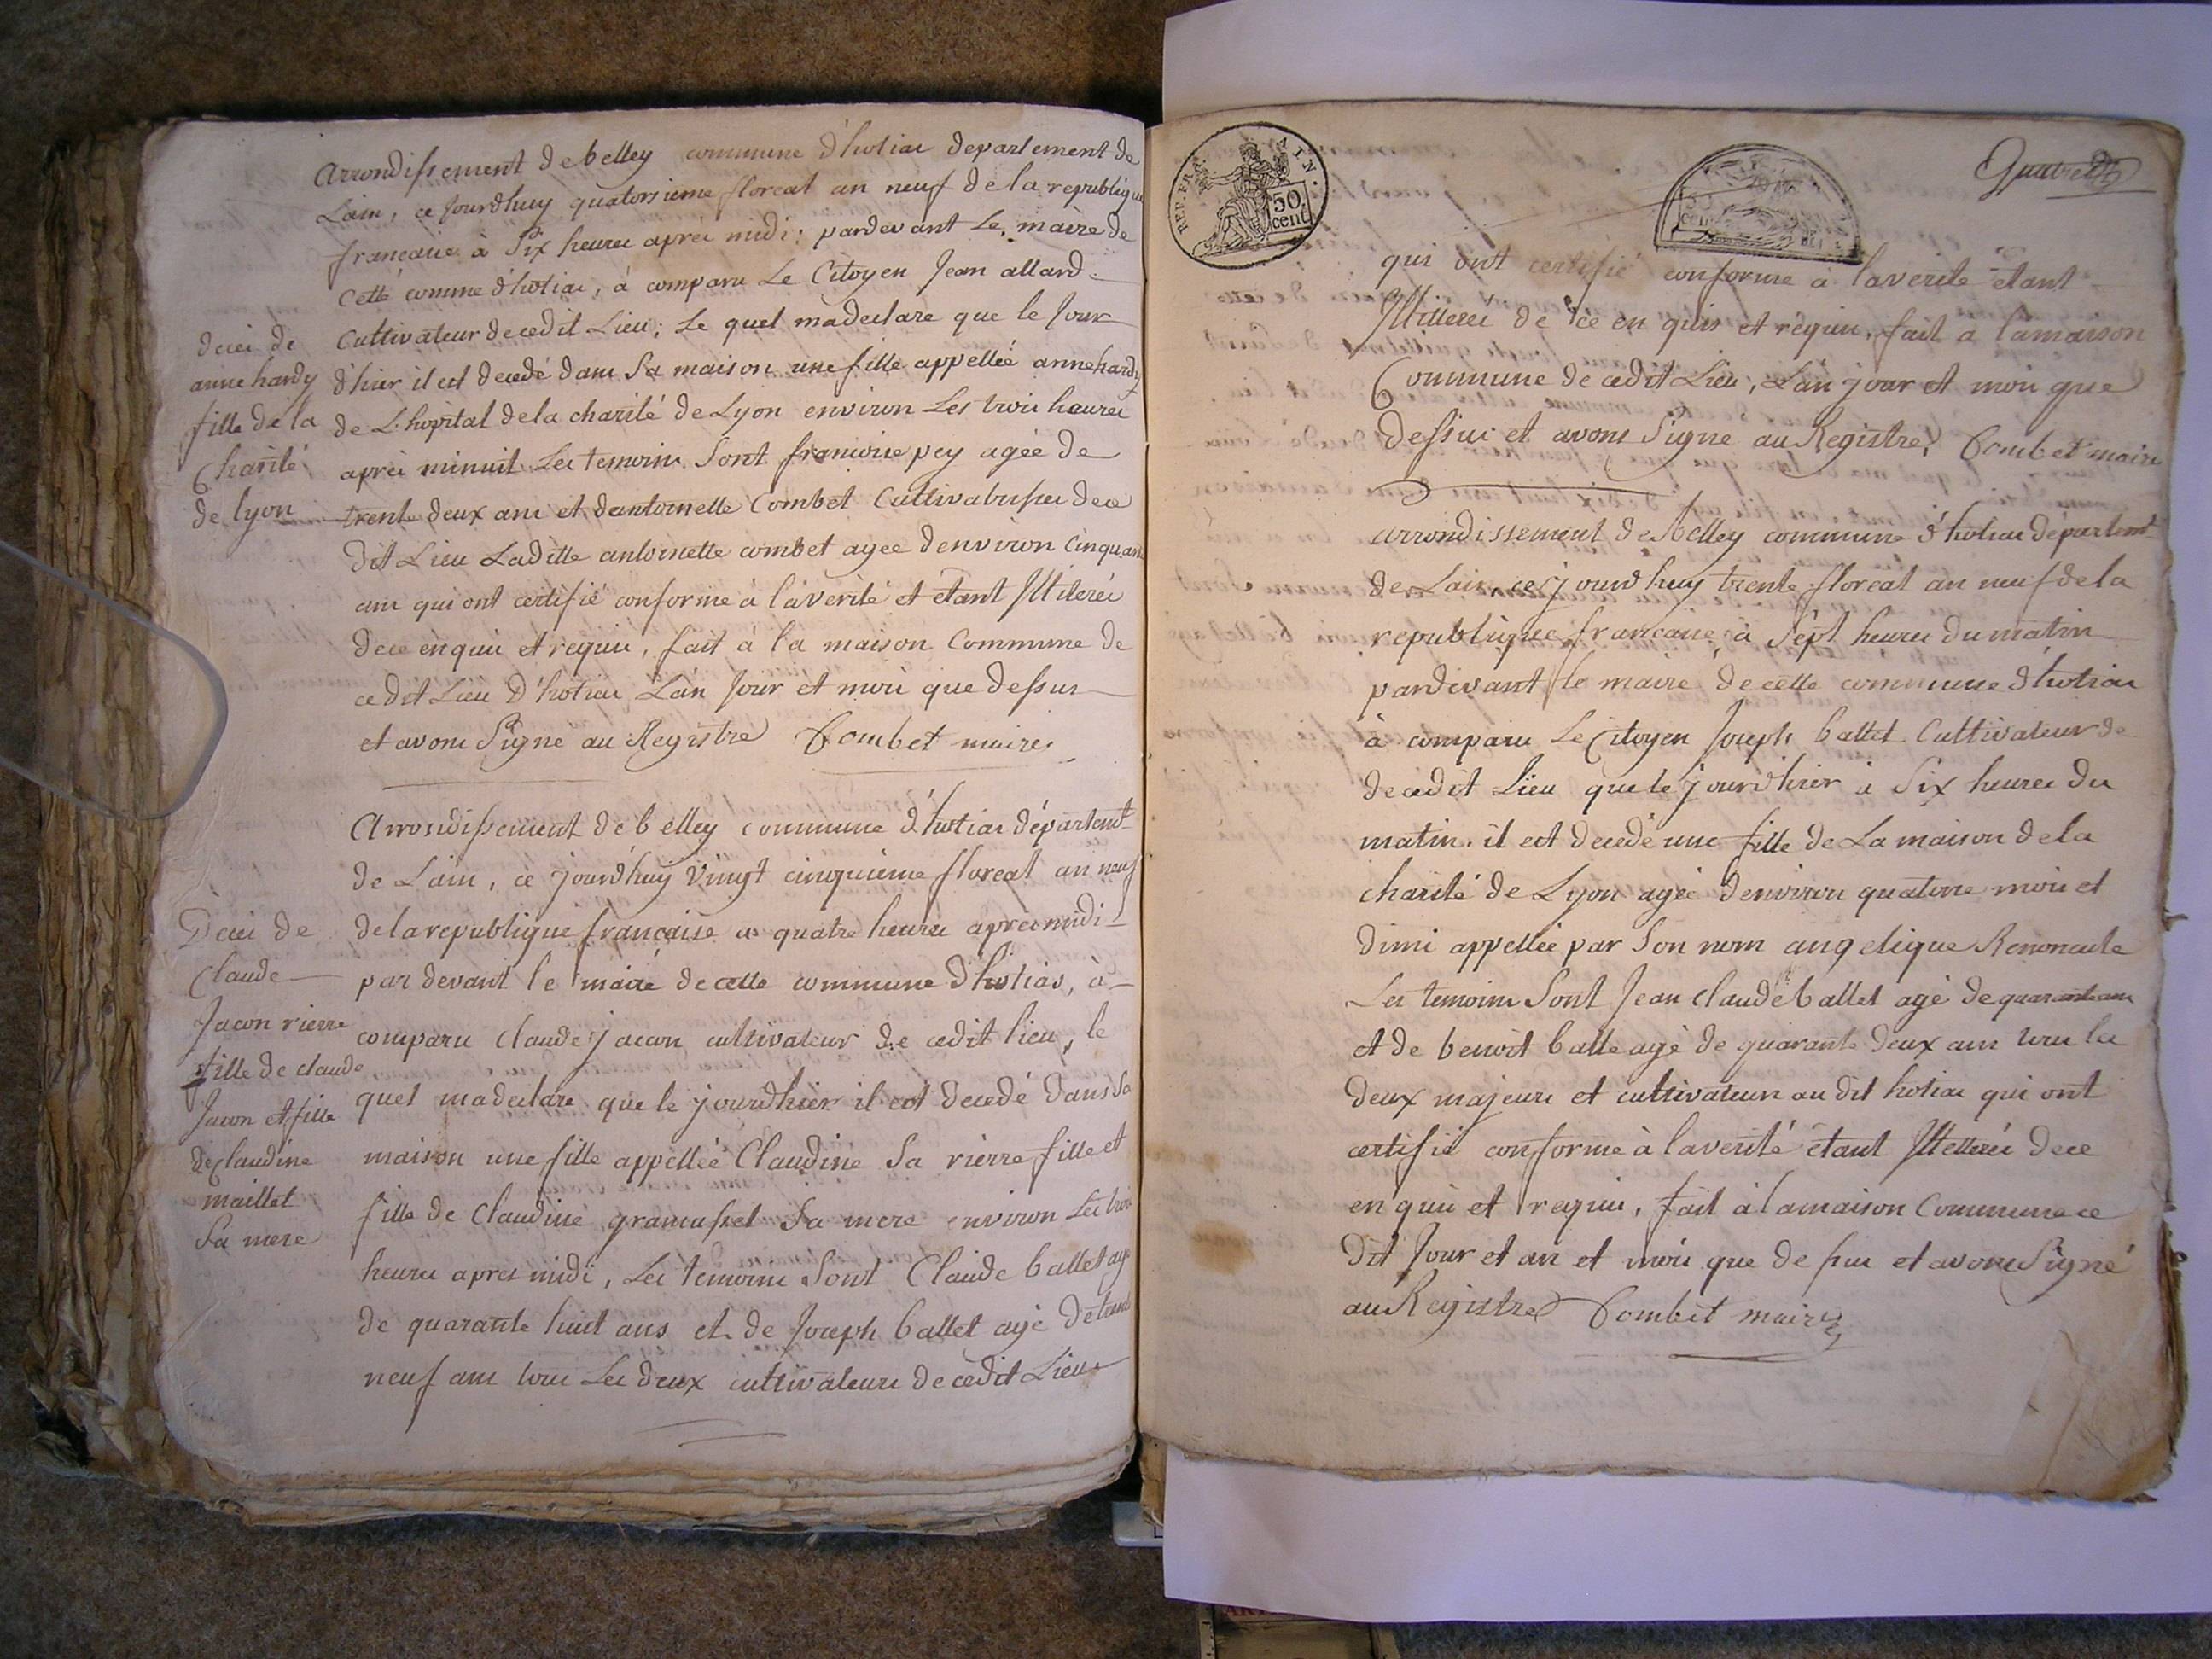 Arrondissement de belley commune d'hotiac departement de
Lain, ce jourdhuy quatorsieme floreal an neuf de la republique
francaise à Six heures après midi; pardevant Le maire de
Cette comme d'hotiac, à comparu Le Citoyen Jean allard
Cultivateur de cedit Lieu; Le quel madeclare que le Jour
d'hier il est decedé dans Sa maison une fille appellée anne hardy
de L'hopital de la charité de Lyon environ Les trois heures
après minuit Les temoins Sont francoise pey agée de
trente deux ans et dantoinette Combet Cultivatrisses de ce
dit Lieu Laditte antoinette combet agee denviron Cinquante
ans qui ont certifié conforme à la vérité et étant Illiterés
de ce enquis et requis, fait à la maison Commune de
ce dit Lieu d'hotiac Lan Jour et mois que dessus
et avons Signé au Registre Combet maire
deces de
anne hardy
fille de la
Charité
de lyon
Arrondissement de belley commune d'hotiac départemt
de Lain, ce jourd'huy vingt cinquieme floreal an neuf
de la republique française a quatre heures après midi
par devant le maire de cette commune d'hotias, à
comparu claude jacon cultivateur de cedit lieu, le
quel madeclare que le jourdhier il est decedé dans Sa
maison une fille appellée Claudine Sa rierre fille et
fille de Claudine gramussel Sa mere environ Les trois
heures apres midi, Les temoins Sont Claude ballet agé
de quarante huit ans et de Joseph ballet agé de trente
neuf ans tous Les deux cultivateurs de cedit Lieu
Deces de
Claude
Jacon rierre
fille de claude
Jacon et fille
de Claudine
maillet
Sa mere
REP. FRA.
50
cent
50
cent
qui ont certifié conforme à la verité étant
Illiteres de ce en quis et requis, fait a la maison
Commune de cedit Lieu, Lan jour et mois que
dessus et avons Signe au Registre, Combet maire
arrondissement de Belley commune d'hotiac départemt
de Lain, ce jourd'huy trente floreal an neuf de la
republique francaise, à Sept heures du matin
pardevant le maire de cette commune d'hotiac
à comparu Le Citoyen Joseph ballet Cultivateur de
de cedit Lieu que le jourd'hier à Six heures du
matin. il est decedé une fille de La maison de la
charité de Lyon agée denviron quatorse mois et
dimi appellée par Son nom angelique Renoncule
Les temoins Sont Jean claude ballet agé de quarante ans
et de benoit balle agé de quarante deux ans tous les
deux majeurs et cultivateurs au dit hotiac qui ont
certifié conforme à la verité étant Illetterés de ce
en quis et requis, fait à la maison Commune ce
dit Jour et an et mois que de sus et avons Signé
au Registre Combet maire